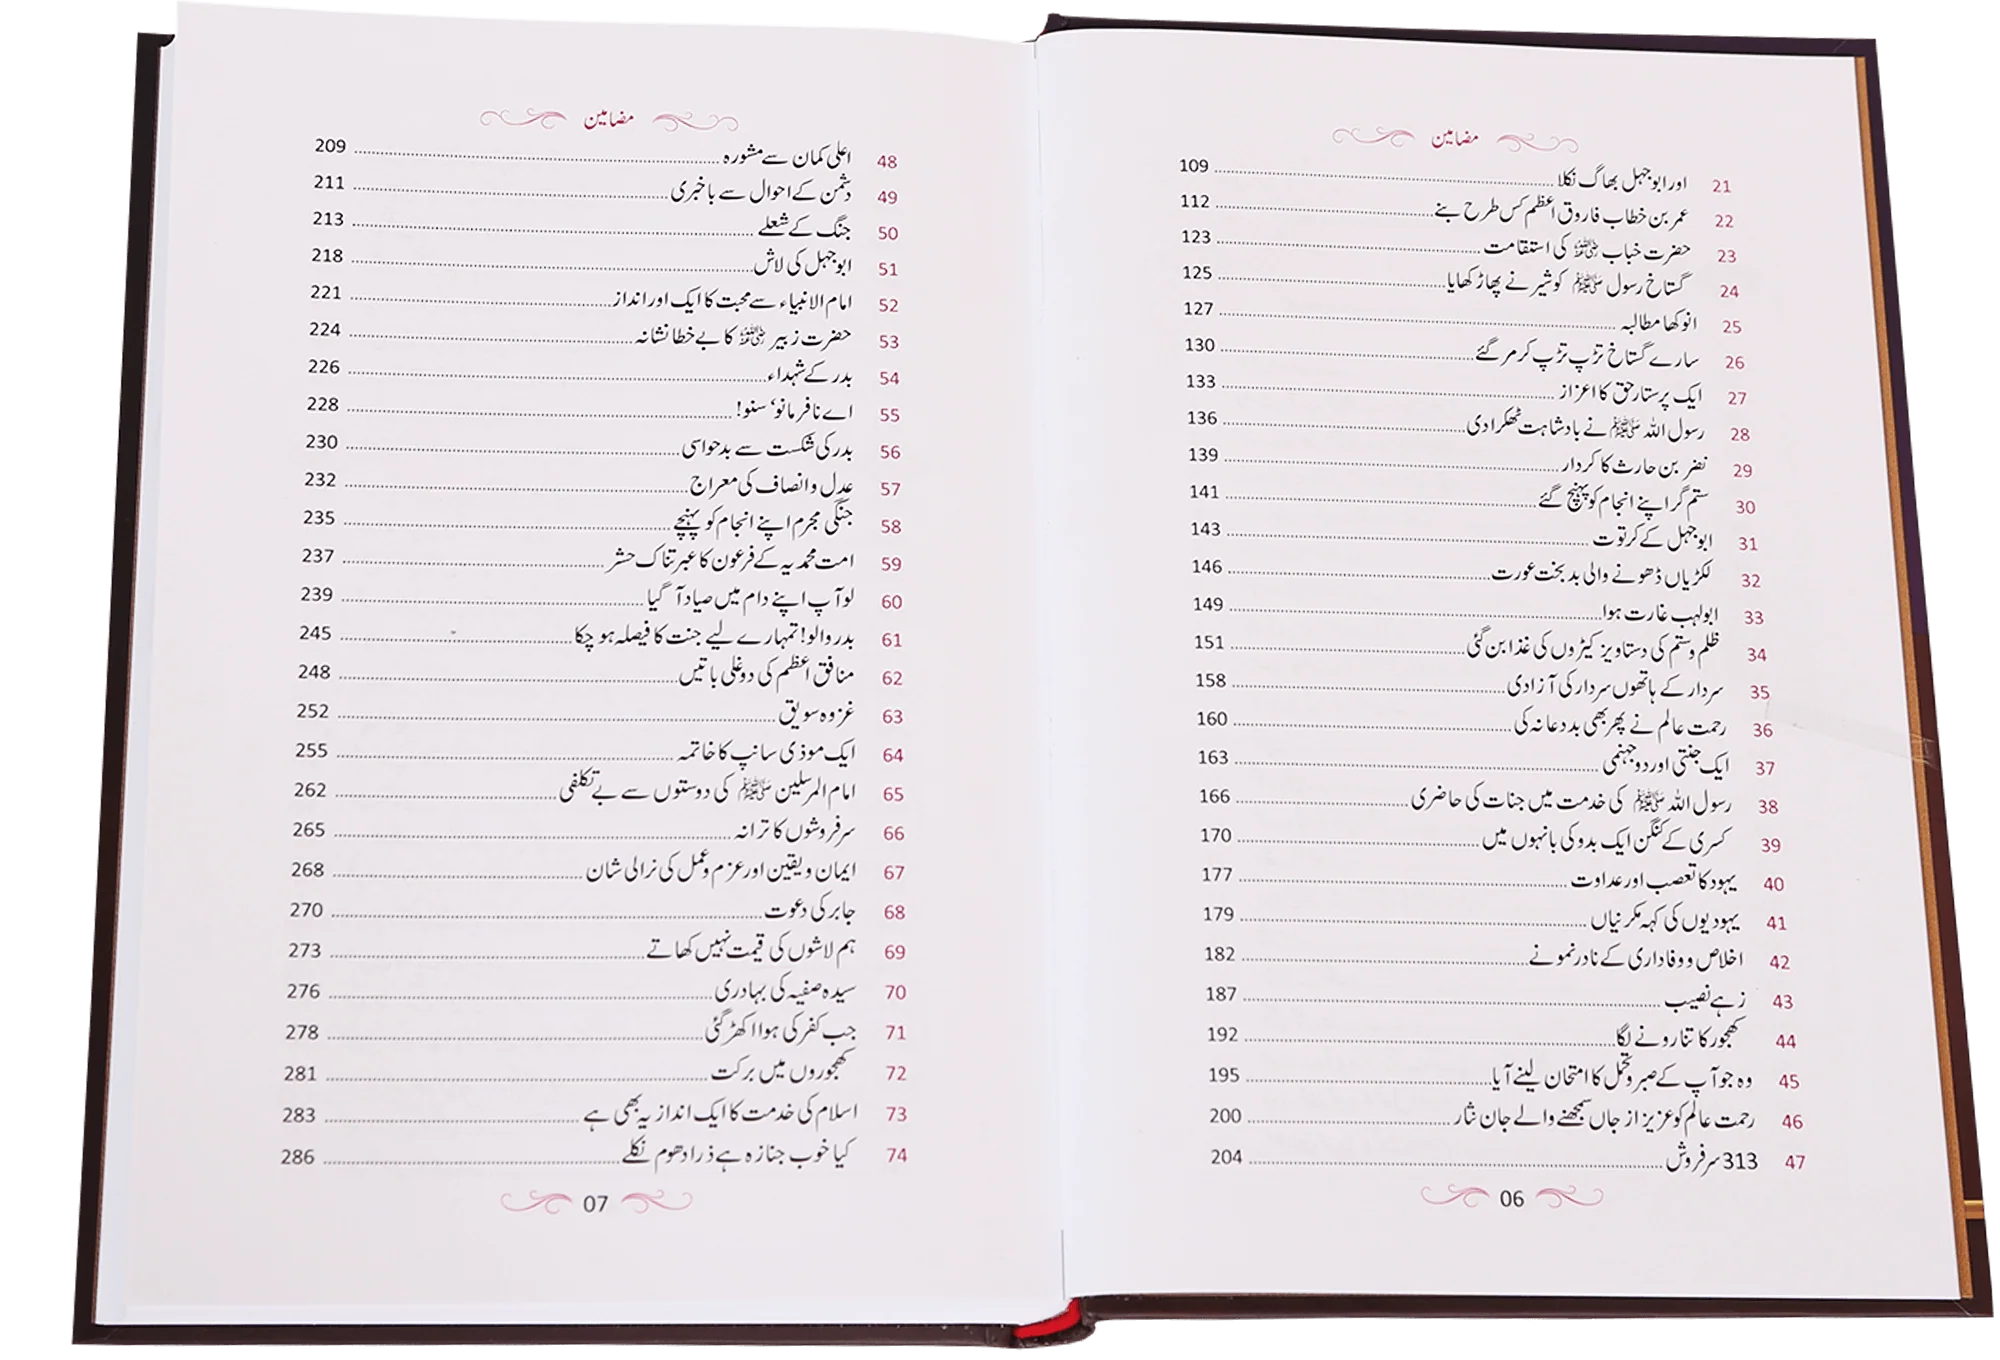 مضامین
21 اور ابوجہل بھاگ نکلا 109
22 عمر بن خطاب فاروق اعظم کس طرح بنے 112
23 حضرت خباب رضی اللہ عنہ کی استقامت 123
24 گستاخ رسول ﷺ کو شیر نے پھاڑ کھایا 125
25 انوکھا مطالبہ 127
26 سارے گستاخ تڑپ تڑپ کر مر گئے 130
27 ایک پرستار حق کا اعزاز 133
28 رسول اللہ ﷺ نے بادشاہت ٹھکرا دی 136
29 نضر بن حارث کا کردار 139
30 ستم گر اپنے انجام کو پہنچ گئے 141
31 ابوجہل کے کرتوت 143
32 لکڑیاں ڈھونے والی بدبخت عورت 146
33 ابولہب غارت ہوا 149
34 ظلم و ستم کی دستاویز کیڑوں کی غذا بن گئی 151
35 سردار کے ہاتھوں سردار کی آزادی 158
36 رحمت عالم نے پھر بھی بددعا نہ کی 160
37 ایک جنتی اور دو جہنمی 163
38 رسول اللہ ﷺ کی خدمت میں جنات کی حاضری 166
39 کسری کے کنگن ایک بدو کی بانہوں میں 170
40 یہود کا تعصب اور عداوت 177
41 یہودیوں کی کہہ مکرنیاں 179
42 اخلاص و وفاداری کے نادر نمونے 182
43 زہے نصیب 187
44 کھجور کا تنا رونے لگا 192
45 وہ جو آپ کے صبر و تحمل کا امتحان لینے آیا 195
46 رحمت عالم کو عزیز از جاں سمجھنے والے جان نثار 200
47 313 سرفروش 204
06
مضامین
48 اعلی کمان سے مشورہ 209
49 دشمن کے احوال سے باخبری 211
50 جنگ کے شعلے 213
51 ابوجہل کی لاش 218
52 امام الانبیاء سے محبت کا ایک اور انداز 221
53 حضرت زبیر رضی اللہ عنہ کا بے خطا نشانہ 224
54 بدر کے شہداء 226
55 اے نافرمانو، سنو! 228
56 بدر کی شکست سے بدحواسی 230
57 عدل و انصاف کی معراج 232
58 جنگی مجرم اپنے انجام کو پہنچے 235
59 امت محمدیہ کے فرعون کا عبرتناک حشر 237
60 لو آپ اپنے دام میں صیاد آ گیا 239
61 بدر والو! تمہارے لیے جنت کا فیصلہ ہو چکا 245
62 منافق اعظم کی دوغلی باتیں 248
63 غزوہ سویق 252
64 ایک موذی سانپ کا خاتمہ 255
65 امام المرسلین ﷺ کی دوستوں سے بے تکلفی 262
66 سرفروشوں کا ترانہ 265
67 ایمان و یقین اور عزم و عمل کی نرالی شان 268
68 جابر کی دعوت 270
69 ہم لاشوں کی قیمت نہیں کھاتے 273
70 سیدہ صفیہ کی بہادری 276
71 جب کفر کی ہوا اکھڑ گئی 278
72 کھجوروں میں برکت 281
73 اسلام کی خدمت کا ایک انداز یہ بھی ہے 283
74 کیا خوب جنازہ ہے ذرا دھوم نکلے 286
07